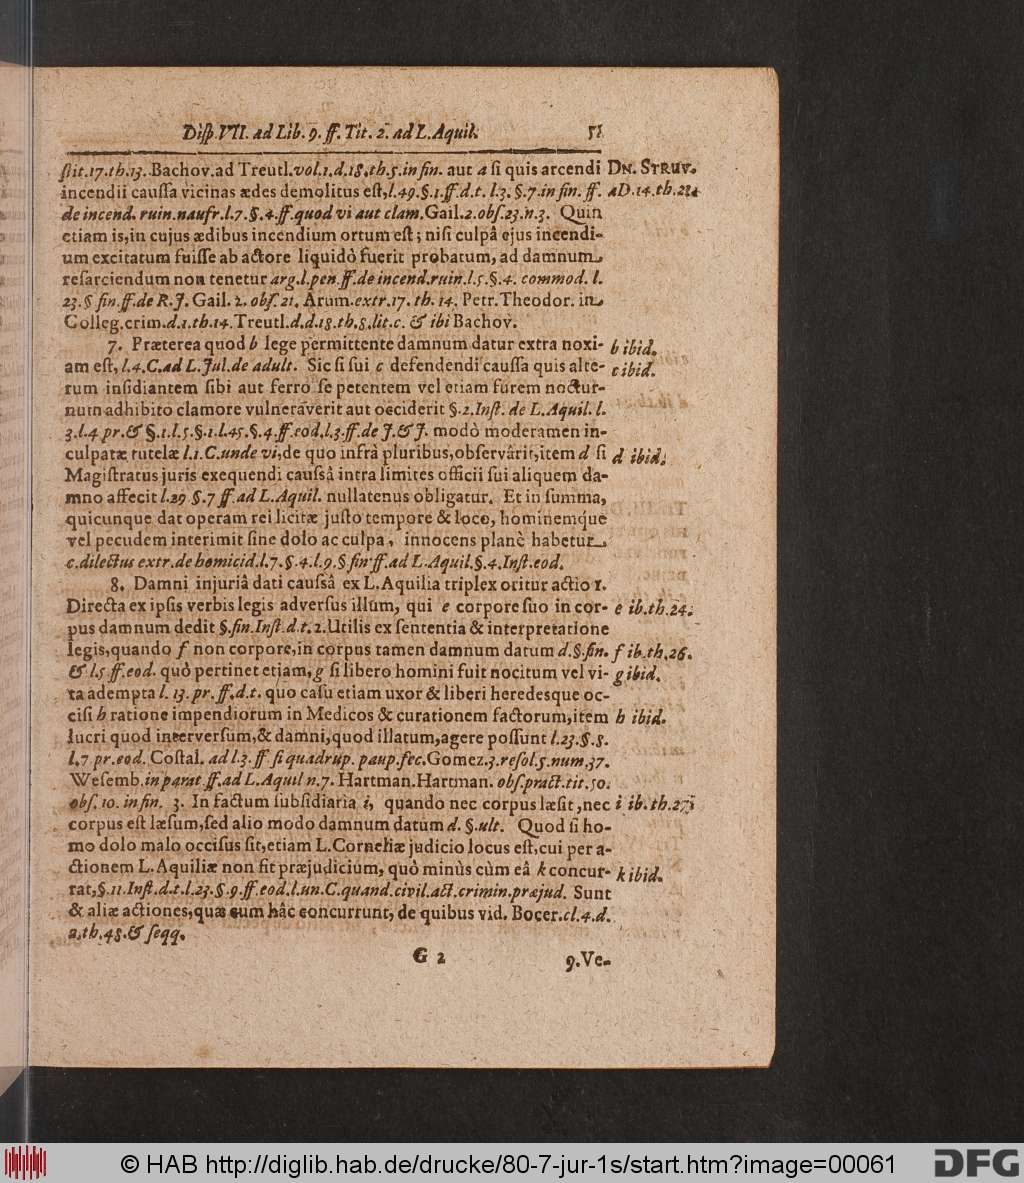 Diſp. VII. ad Lib. 9. ff. Tit. 2. ad L. Aquil. 51
ſtit. 17. th. 13. Bachov. ad Treutl. vol. 1. d. 18. th. 5. in fin. aut a ſi quis arcendi DN. STRUV.
incendii cauſſa vicinas ædes demolitus eſt, l. 49. §. 1. ff. d. t. l. 3. §. 7. in fin. ff. a D. 14. th. 21.
de incend. ruin. naufr. l. 7. §. 4. ff. quod vi aut clam. Gail. 2. obſ. 23. n. 3. Quin
etiam is, in cujus ædibus incendium ortum eſt; niſi culpâ ejus incendi-
um excitatum fuiſſe ab actore liquidò fuerit probatum, ad damnum
reſarciendum non tenetur arg. l. pen. ff. de incend. ruin. l. 5. §. 4. commod. l.
23. § fin. ff. de R. J. Gail. 2. obſ. 21. Arum. extr. 17. th. 14. Petr. Theodor. in
Colleg. crim. d. 1. th. 14. Treutl. d. d. 18. th. 5. lit. c. & ibi Bachov.
7. Præterea quod b lege permittente damnum datur extra noxi- b ibid.
am eſt, l. 4. C. ad L. Jul. de adult. Sic ſi ſui c defendendi cauſſa quis alte- c ibid.
rum inſidiantem ſibi aut ferro ſe petentem vel etiam furem noctur-
num adhibito clamore vulneraverit aut occiderit §. 2. Inſt. de L. Aquil. l.
3. l. 4 pr. & §. 1. l. 5. §. 1. l. 45. §. 4. ff. eod. l. 3. ff. de J. & J. modò moderamen in-
culpatæ tutelæ l. 1. C. unde vi, de quo infrà pluribus, obſervârit, item d ſi d ibid.
Magiſtratus juris exequendi cauſsâ intra limites officii ſui aliquem da-
mno affecit l. 29. §. 7 ff. ad L. Aquil. nullatenus obligatur. Et in ſumma,
quicunque dat operam rei licitæ juſto tempore & loco, hominemq́ue
vel pecudem interimit ſine dolo ac culpa, innocens planè habetur
c. dilectus extr. de homicid. l. 7. §. 4. l. 9. § fin ff. ad L. Aquil. §. 4. Inſt. eod.
8. Damni injuriâ dati cauſsâ ex L. Aquilia triplex oritur actio 1.
Directa ex ipſis verbis legis adverſus illum, qui e corpore ſuo in cor- e ib. th. 24.
pus damnum dedit §. fin. Inſt. d. t. 2. Utilis ex ſententia & interpretatione
legis, quando f non corpore, in corpus tamen damnum datum d. §. fin. f ib. th. 26.
& l. 5 ff. eod. quò pertinet etiam, g ſi libero homini fuit nocitum vel vi- g ibid.
ta adempta l. 13. pr. ff. d. t. quo caſu etiam uxor & liberi heredesque oc-
ciſi h ratione impendiorum in Medicos & curationem factorum, item h ibid.
lucri quod interverſum, & damni, quod illatum, agere poſſunt l. 23. §. 8.
l. 7 pr. eod. Coſtal. ad l. 3. ff ſi quadrup. paup. fec. Gomez. 3. reſol. 5. num. 37.
Weſemb. in parat. ff. ad L. Aquil n. 7. Hartman. Hartman. obſ. pract. tit. 50.
obſ. 10. in fin. 3. In factum ſubſidiaria i, quando nec corpus læſit, nec i ib. th. 27.
corpus eſt læſum, ſed alio modo damnum datum d. §. ult. Quod ſi ho-
mo dolo malo occiſus ſit, etiam L. Corneliæ judicio locus eſt, cui per a-
ctionem L. Aquiliæ non fit præjudicium, quò minùs cùm eâ k concur- k ibid.
rat, §. 11. Inſt. d. t. l. 23. §. 9. ff. eod. l. un. C. quand. civil. act. crimin. præjud. Sunt
& aliæ actiones, quæ cum hâc concurrunt, de quibus vid. Bocer. cl. 4. d.
2. th. 48. & ſeqq.
G 2 9. Ve-
© HAB http://diglib.hab.de/drucke/80-7-jur-1s/start.htm?image=00061
DFG